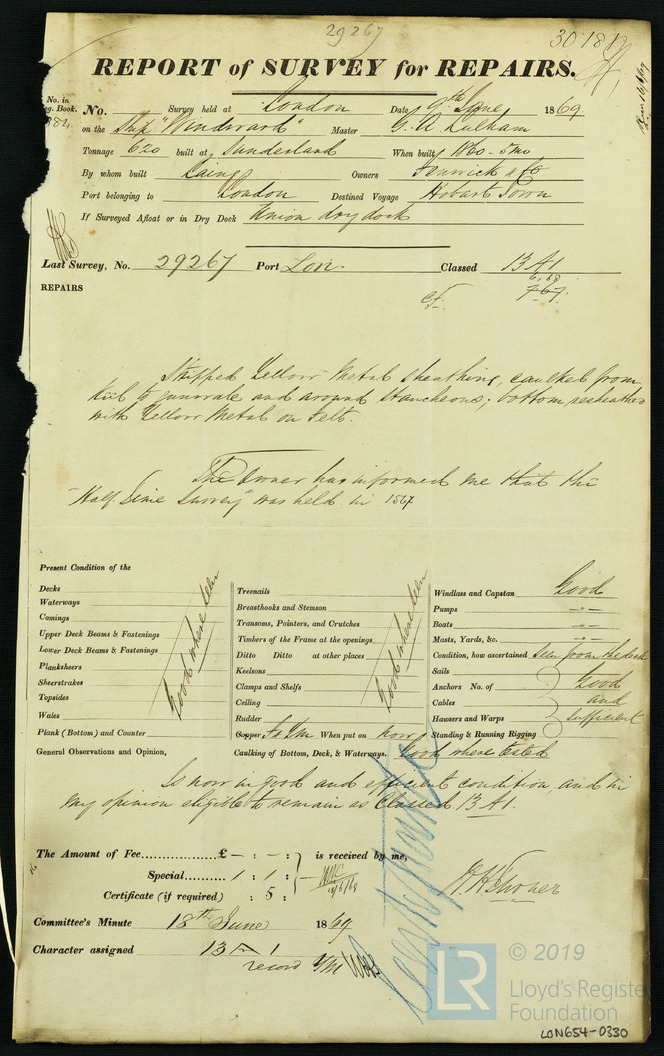 29267
30181
REPORT of SURVEY for REPAIRS.
No. in
eg. Book.
384
No. Survey held at London Date 9th June 1869
on the Ship "Windward" Master G. A. Lulham
Tonnage 620 built at Sunderland When built 1860 - 5 mo
By whom built Laing Owners Fenwick & Co
Port belonging to London Destined Voyage Hobart Town
If Surveyed Afloat or in Dry Dock Union dry dock
Last Survey, No. 29267 Port Lon. Classed 13 A1
6,68
7.67.
REPAIRS
Stripped Yellow Metal sheathing, caulked from
keel to gunwale and around Stancheons; bottom resheathed
with Yellow Metal on Felt.
The Owner has informed me that the
"Half Time Survey" was held in 1867
Present Condition of the
Decks
Waterways
Comings
Upper Deck Beams & Fastenings
Lower Deck Beams & Fastenings
Planksheers
Sheerstrakes
Topsides
Wales
Plank (Bottom) and Counter
Good where seen
Treenails
Breasthooks and Stemson
Transoms, Pointers, and Crutches
Timbers of the Frame at the openings
Ditto Ditto at other places
Keelsons
Clamps and Shelfs
Ceiling
Rudder
Good where seen
Copper F & YM When put on now
Windlass and Capstan Good
Pumps -"-
Boats -"-
Masts, Yards, &c. -"-
Condition, how ascertained Seen from the deck
Sails
Anchors No. of
Cables
Hawsers and Warps
Standing & Running Rigging
Good
and
sufficient
General Observations and Opinion, Caulking of Bottom, Deck, & Waterways. Good where tested
Is now in good and efficient condition and in
my opinion eligible to remain as Classed 13 A1.
The Amount of Fee............... £ - : - : is received by me,
Special......... 1 : 1 :
Certificate (if required) : 5 :
Committee's Minute 18th June 1869
Character assigned 13 A 1
record YM
© 2019
LR
Lloyd's Register
Foundation
LON654-0330